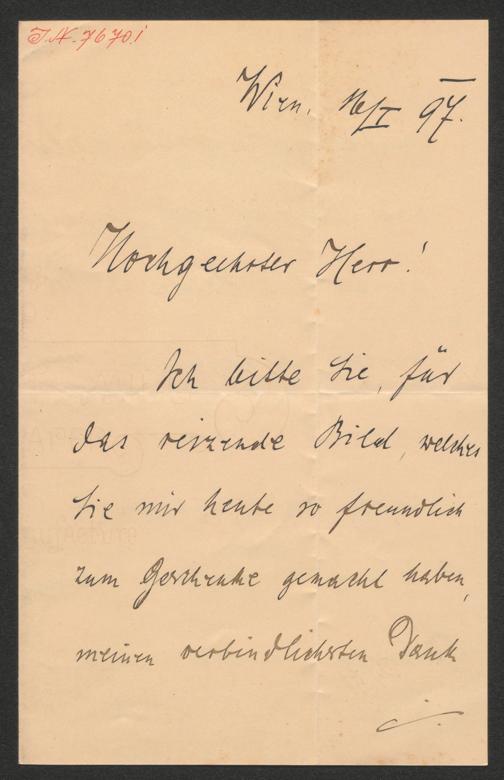 J.N. 7670.1
Wien. 16/I 97.
Hochgeehrter Herr!
Ich bitte Sie, für
das reizende Bild, welches
Sie mir heute so freundlich
zum Geschenke gemacht haben,
meinen verbindlichsten Dank